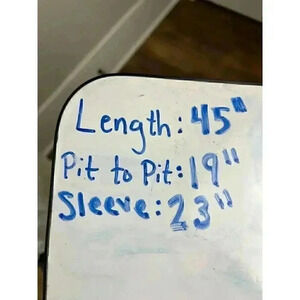 Length: 45"
Pit to Pit: 19"
Sleeve: 23"